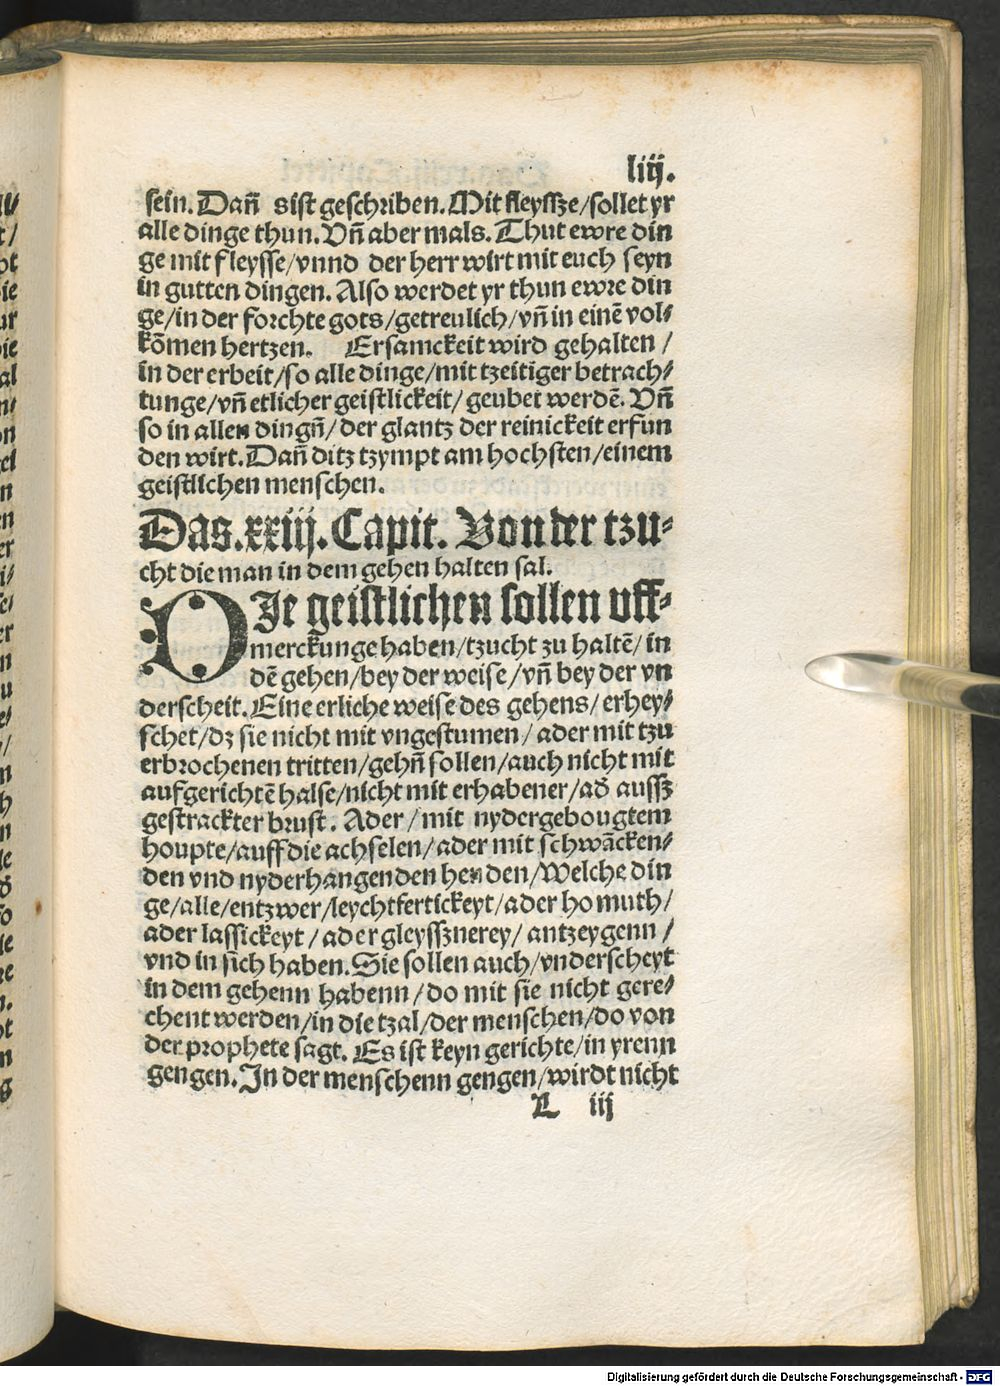 liij.
sein. Dañ sist geschriben. Mit fleyssze/sollet yr
alle dinge thun. Vñ aber mals. Thut ewre din
ge mit fleysse/vnnd der herr wirt mit euch seyn
in gutten dingen. Also werdet yr thun ewre din
ge/in der forchte gots/getreulich/vñ in einē vol⸗
kōmen hertzen. Ersamckeit wird gehalten/
in der erbeit/so alle dinge/mit tzeitiger betrach⸗
tunge/vñ etlicher geistlickeit/geubet werdē. Vñ
so in allen dingñ/der glantz der reinickeit erfun
den wirt. Dañ ditz tzympt am hochsten/einem
geistlichen menschen.
Das. xxiij. Capit. Von der tzu⸗
cht die man in dem gehen halten sal.
DJe geistlichen sollen vff⸗
merckunge haben/tzucht zu haltē/in
dē gehen/bey der weise/vñ bey der vn
derscheit. Eine erliche weise des gehens/erhey⸗
schet/dz sie nicht mit vngestumen/ader mit tzu
erbrochenen tritten/gehñ sollen/auch nicht mit
aufgerichtē halse/nicht mit erhabener/ad̄ aussz
gestrackter brust. Ader/mit nydergebougtem
houpte/auff die achselen/ader mit schwācken⸗
den vnd nyderhangenden henden/Welche din
ge/alle/entzwer/leychtfertickeyt/ader homuth/
ader lassickeyt/ader gleyssznerey/antzeygenn/
vnd in sich haben. Sie sollen auch/vnderscheyt
in dem gehenn habenn/do mit sie nicht gere⸗
chent werden/in die tzal/der menschen/do von
der prophete sagt. Es ist keyn gerichte/in yrenn
gengen. Jn der menschenn gengen/wirdt nicht
L iij
Digitalisierung gefördert durch die Deutsche Forschungsgemeinschaft - DFG